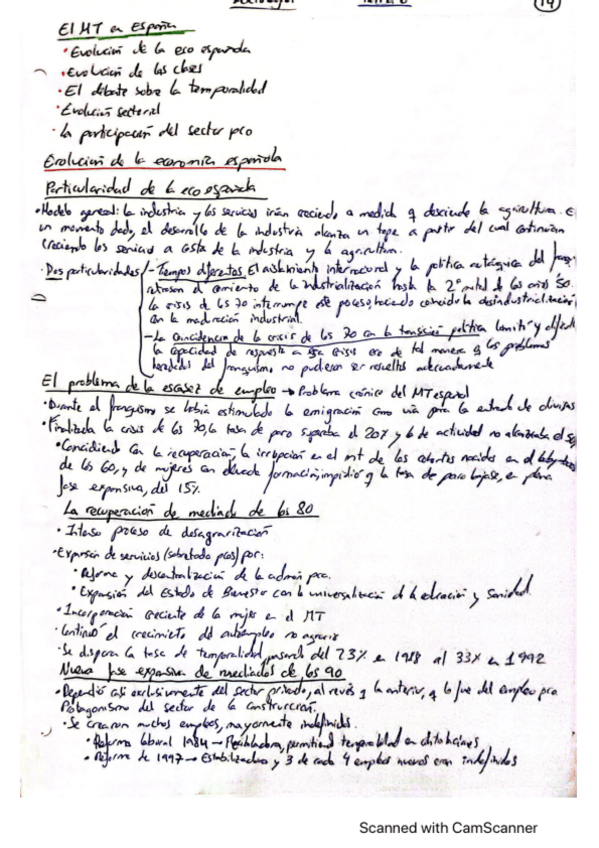 14
El MT en España
· Evolución de la eco española
· Evolución de las clases
· El debate sobre la temporalidad
· Evolución sectorial
· La participación del sector pco
Evolución de la economía española
Particularidad de la eco española
· Modelo general: la industria y los servicios irían creciendo a medida q desciende la agricultura. E
un momento dado, el desarrollo de la industria alcanza un tope a partir del cual continúan
creciendo los servicios a costa de la industria y la agricultura.
· Dos particularidades - Tiempos diferentes El aislamiento internacional y la política autárquica del
retrasan el comienzo de la industrialización hasta la 2ª mitad de los años 50.
La crisis de los 70 interrumpe este proceso, haciendo coincidir la desindustrialización
con la maduración industrial.
- La coincidencia de la crisis de los 70 con la transición política limitó y
la capacidad de respuesta a esa crisis de tal manera q los problemas
heredados del franquismo no pudieron ser resueltos adecuadamente
El problema de la escasez de empleo → Problema crónico del MT español
· Durante el franquismo se había estimulado la emigración como vía para la entrada de divisas
· Finalizada la crisis de los 70, la tasa de paro superaba el 20% y la de actividad no alcanzaba el
· Coincidiendo con la recuperación, la irrupción en el mt de las cohortes nacidas en el
de los 60, y de mujeres con elevada formación, impidió q la tasa de paro bajase, en plena
fase expansiva, del 15%.
La recuperación de mediados de los 80
· Intenso proceso de desagrarización
· Expansión de servicios (sobretodo pcos) por:
· Reforma y descentralización de la admón pca.
· Expansión del Estado de Bienestar con la universalización de la educación y sanidad.
· Incorporación creciente de la mujer en el MT
· Continuó el crecimiento del autoempleo no agrario
· Se dispara la tasa de temporalidad pasando del 23% en 1988 al 33% en 1992
Nueva fase expansiva de mediados de los 90
· Dependió casi exclusivamente del sector privado, al revés q la anterior, q lo fue del empleo pco
Protagonismo del sector de la construcción.
· Se crearon muchos empleos, mayormente indefinidos.
· Reforma laboral 1984 → Flexibilizadora, permitiend temporalidad en
· Reforma de 1997 → Estabilizadora y 3 de cada 4 empleos nuevos eran indefinidos
Scanned with CamScanner